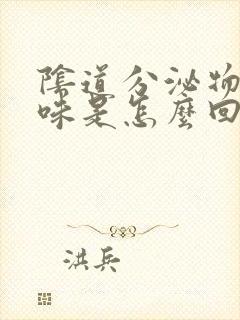 陰道分泌物
味是怎麼回
洪兵